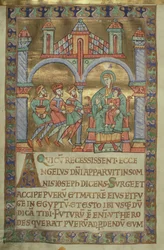 QUI CŪ RECESSISSENT ECCE
ANGELUS DNI APPARUIT IN SOM
NIS IOSEPH DICENS SURGE ET
ACCIPE PUERŪ ET MATRĒ EIUS ET FU
GE IN EGYPTŪ ET ESTO IBI USQ DUM
DICĀ TIBI FUTURŪ Ē ENIM UT HERO
DES QUERAT PUERUM AD